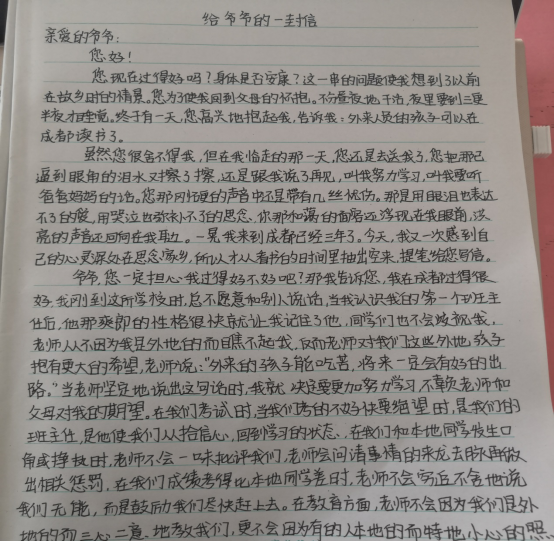 给爷爷的一封信
亲爱的爷爷:
您好!
您现在过得好吗?身体是否安康?这一串的问题使我想到了以前
在故乡时的情景。您为了使我回到父母的怀抱。不分昼夜地干活,夜里要到三更
半夜才睡觉。终于有一天,您高兴地抱起我,告诉我:外来人员的孩子可以在
成都读书了。
虽然您很舍不得我,但在我临走的那一天,您还是去送我了,您把那已
逼到眼角的泪水对擦了擦,还是跟我说了再见,叫我努力学习,叫我要听
爸爸妈妈的话。您那刚硬的声音中还是带有几丝忧伤。那是用眼泪也表达
不了的爱,用哭泣也弥补不了的思念。你那和蔼的面容还浮现在我眼前,洪
亮的声音还回向在我耳边。一晃我来到成都已经三年了。今天,我又一次感到自
己的心灵深处在思念家乡,所以才从看书的时间里抽出空来,提笔给您写信。
爷爷,您一定担心我过得好不好吧?那我告诉您,我在成都过得很
好,我刚到这所学校时,总不愿意和别人说话,当我认识我的第一个班主
任后,他那爽郎的性格很快就让我记住了他,同学们也不会歧视我,
老师从不因为我是外地的而瞧不起我,反而老师对我们这些外地孩子
抱有更大的希望,老师说:“外来的孩子能吃苦,将来一定会有好的出
路。”当老师坚定地说出这句话时,我就决定要更加努力学习,不辜负老师和
父母对我的期望。在我们考试时,当我们考的不好快要绝望时,是我们的
班主任,是他使我们从拾信心,回到学习的状态,在我们和本地同学发生口
角或挣执时,老师不会一味批评我们,老师会问清事情的来龙去脉再做
出相关惩罚,在我们成绩考得比本地同学差时,老师不会写近不舍地说
我们无能,而是鼓励我们尽快赶上去。在教育方面,老师不会因为我们是外
地的而三心二意地教我们,更不会因为有的人本地的而特地小心的照